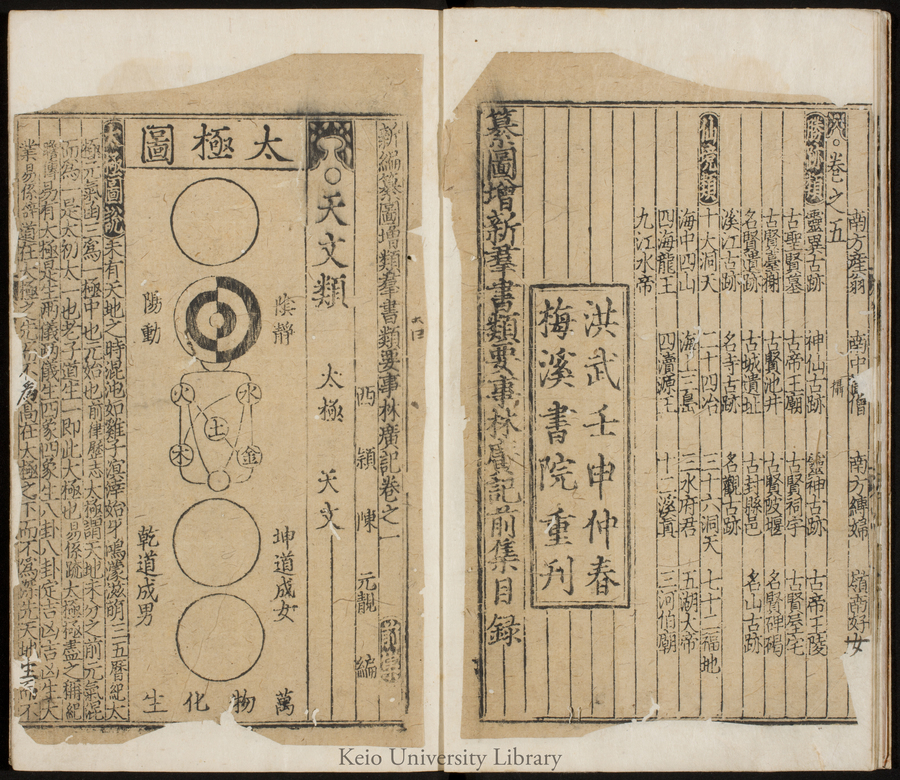 南方產翁 南中僧 南方縛婦 嶺南好女
卷之五
勝跡類 靈異古跡 神仙古跡 靈神古跡 古帝王陵
古聖賢墓 古帝王廟 古賢祠宇 古賢居宅
古賢臺榭 古賢池井 古賢陂堰 名賢碑碣
名賢書跡 古城潰址 古封縣邑 名山古跡
溪江古跡 名寺古跡 名觀古跡
仙境類 十大洞天 二十四治 三十六洞天 七十二福地
海中四山 海上三島 三水府君 五湖大帝
四海龍王 四瀆源王 十二溪眞 三河伯廟
九江水帝
洪武壬申仲春
梅溪書院重刊
纂圖增新羣書類要事林廣記前集目録
新編纂圖增類羣書類要事林廣記卷之一
西潁陳元靚編
天文類 太極 天文
太極圖
陰靜
陽動
火 水
土
木 金
坤道成女
乾道成男
萬物化生
太極圖說 未有天地之時混沌如雞子溟涬始牙鴻濛滋萌三五曆紀太
極元氣函三爲一極中也元始也前律歷志太極謂天地未分之前元氣混
而爲一是太初太一也老子道生一即此太極也易係疏太極極盡之稱紀
瞻傳易有太極是生兩儀兩儀生四象四象生八卦八卦定吉凶吉凶生大
業易係辭道在太極之先而不爲高在太極之下而不爲深先天地生而不
Keio University Library